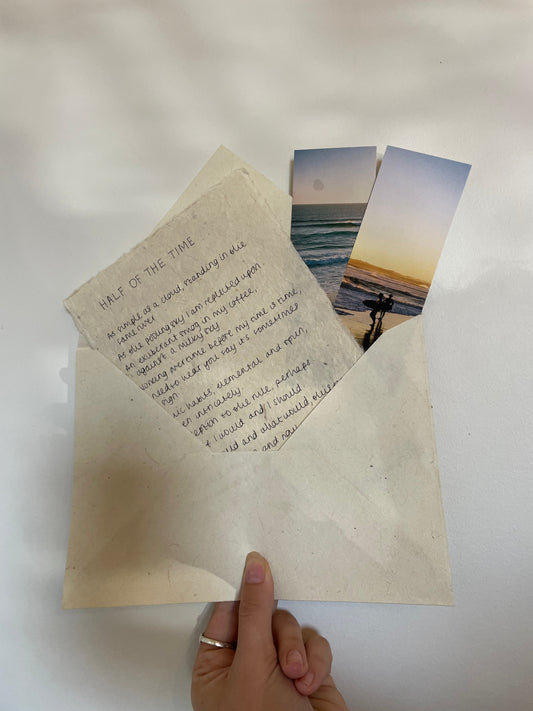 HALF OF THE TIME
As simple as a cloud, standing in the
same river
As the passing sky I am replicated upon.
An exuberant smog in my coffee,
against a milky sky.
Loneing overtime before my time is time,
need to hear you say it's sometimes
sign.
ic habits, elemental and open,
en intricately.
eption to the rule, perhaps.
f I would and I should
uld and what would, these
and now